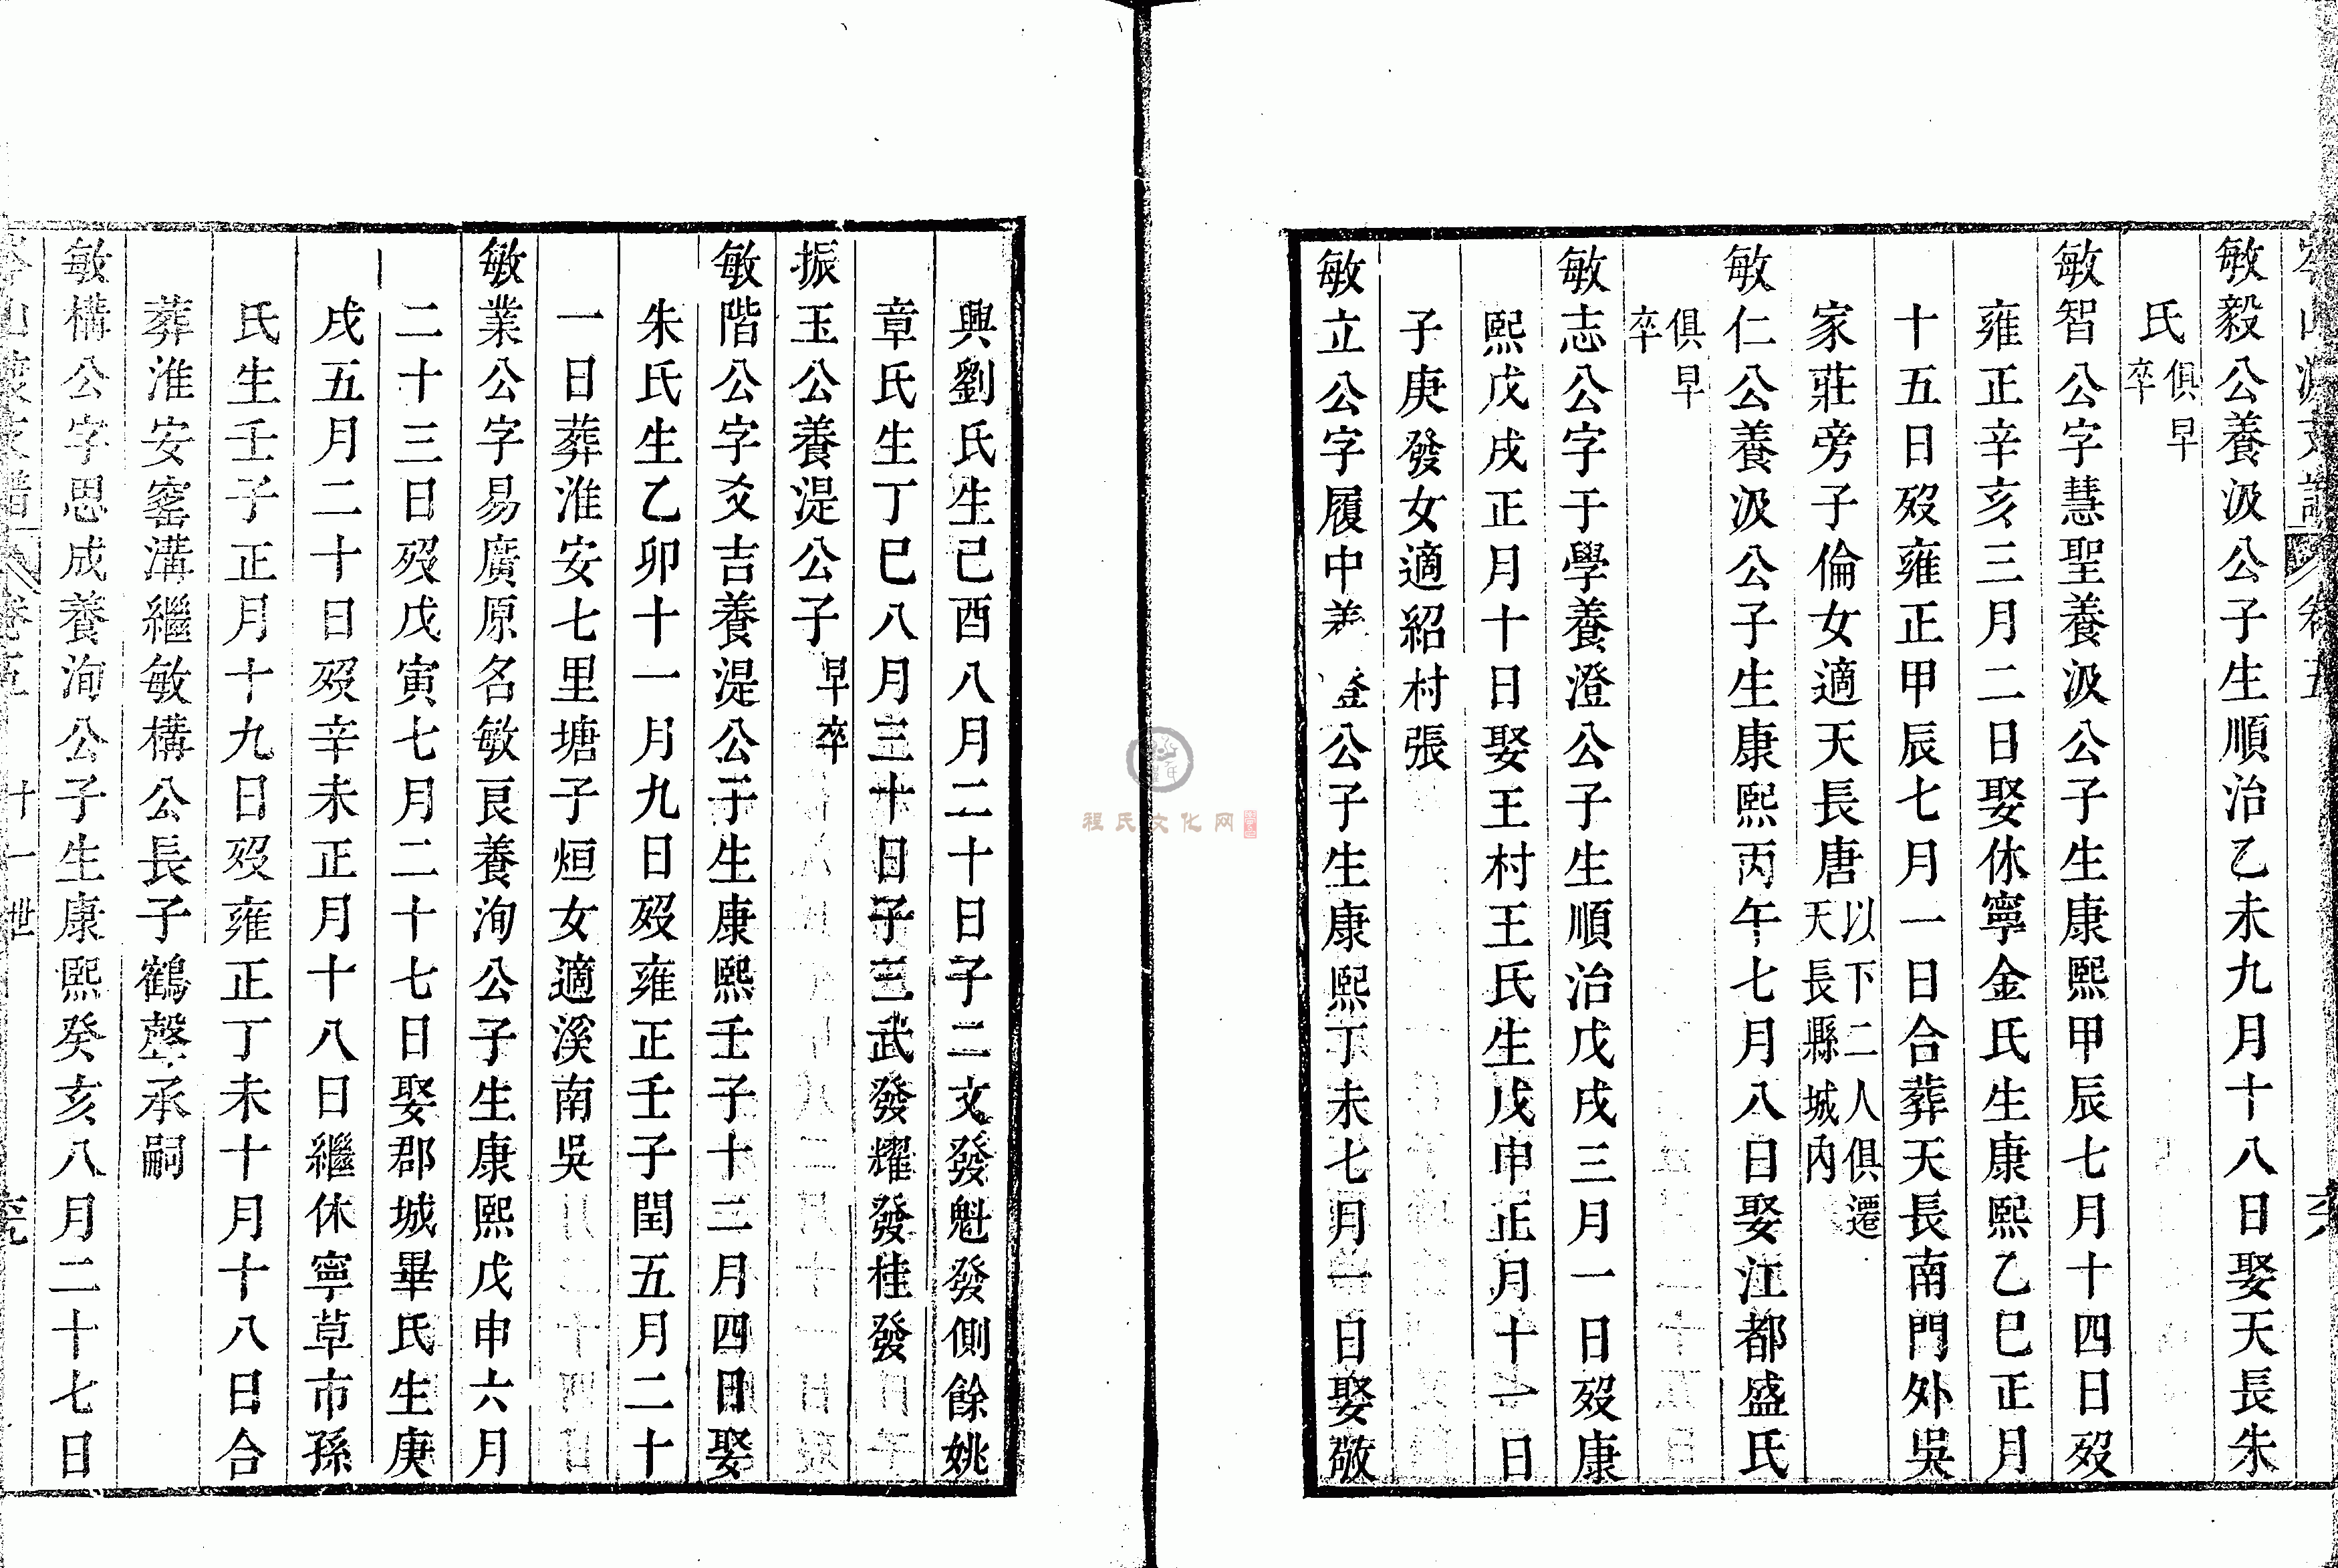 敏毅公養汲公子生順治乙未九月十八日娶天長朱
氏俱早卒
敏智公字慧聖養汲公子生康熙甲辰七月十四日歿
雍正辛亥三月二日娶休寧金氏生康熙乙巳正月
十五日歿雍正甲辰七月一日合葬天長南門外吳
家莊旁子倫女適天長唐以下二人俱遷天長縣城內
敏仁公養汲公子生康熙丙午七月八日娶江都盛氏
俱早卒
敏志公字于學養澄公子生順治戊戌三月一日歿康
熙戊戌正月十日娶王村王氏生戊申正月十一日
子庚發女適紹村張
敏立公字履中養 公子生康熙丁未七月一日娶敬
興劉氏生己酉八月二十日子二文發魁發側餘姚
章氏生丁巳八月三十日子三武發耀發桂發
振玉公養湜公子早卒
敏階公字爻吉養湜公子生康熙壬子十二月四日娶
朱氏生乙卯十一月九日歿雍正壬子閏五月二十
一日葬淮安七里塘子烜女適溪南吳
敏業公字易廣原名敏艮養洵公子生康熙戊申六月
二十三日歿戊寅七月二十七日娶郡城畢氏生庚
戌五月二十日歿辛未正月十八日繼休寧草市孫
氏生壬子正月十九日歿雍正丁未十月十八日合
葬淮安窰溝繼敏構公長子鶴聲承嗣
敏構公字思成養洵公子生康熙癸亥八月二十七日
卷五 十一世
程氏文化网